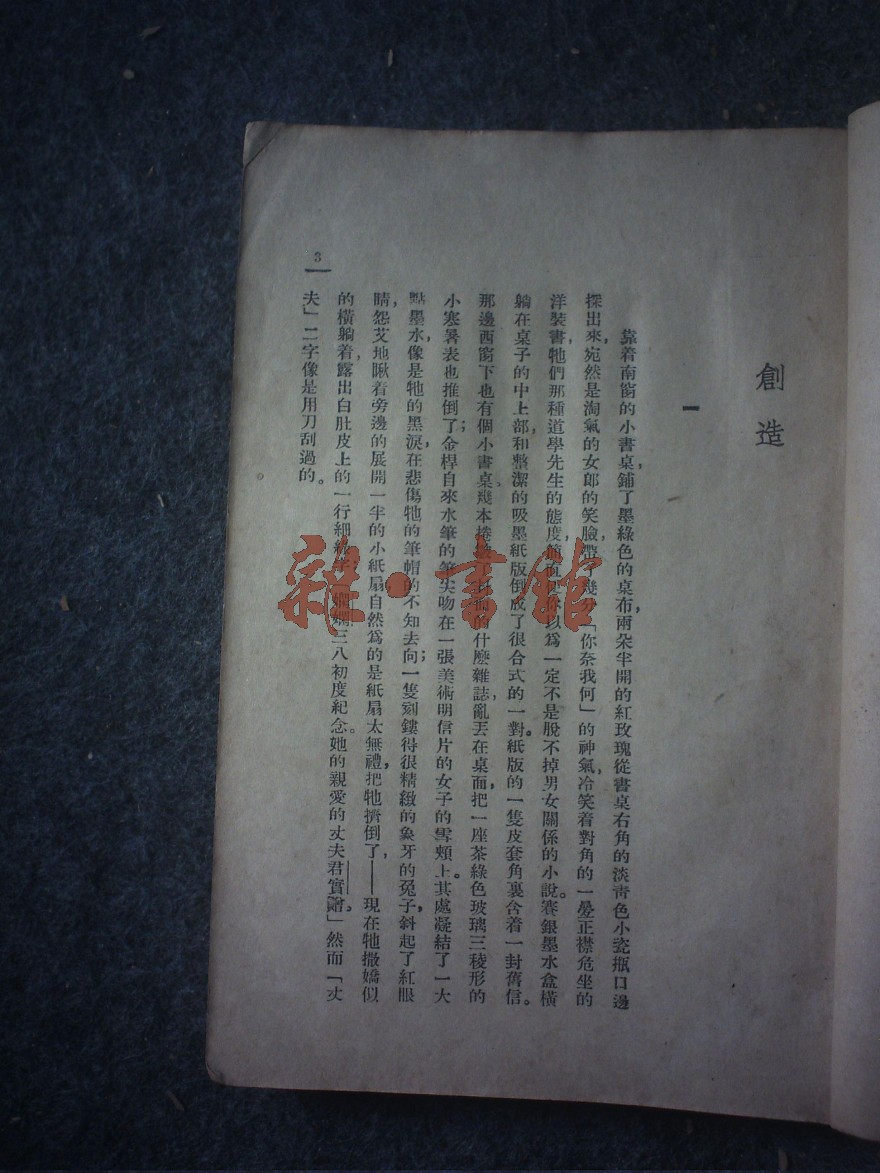 創造
一
靠着南窗的小書桌，鋪了墨綠色的桌布，兩朵半開的紅玫瑰從書桌右角的淡靑色小瓷瓶口邊
探出來，宛然是淘氣的女郎的笑臉，帶了幾分「你奈我何」的神氣，冷笑着對角的一疊正襟危坐的
洋裝書，牠們那種道學先生的態度，簡直使你以爲一定不是脫不掉男女關係的小說。賽銀墨水盒橫
躺在桌子的中上部，和整潔的吸墨紙版倒成了很合式的一對。紙版的一隻皮套角裏含着一封舊信。
那邊西窗下也有個小書桌。幾本捲的什麼雜誌，亂丟在桌面，把一座茶綠色玻璃三稜形的
小寒暑表也推倒了；金桿自來水筆的筆尖吻在一張美術明信片的女子的雪頰上。其處凝結了一大
點墨水，像是牠的黑淚，在悲傷牠的筆帽的不知去向；一隻刻鏤得很精緻的象牙的兔子，斜起了紅眼
睛，怨艾地瞅着旁邊的展開一半的小紙扇，自然爲的是紙扇太無禮，把牠擠倒了，——現在牠撒嬌似
的橫躺着，露出白肚皮上的一行細綠字：「嫻嫻三八初度紀念。她的親愛的丈夫君實贈。」然而「丈
夫」二字像是用刀刮過的。
3
雜·書館